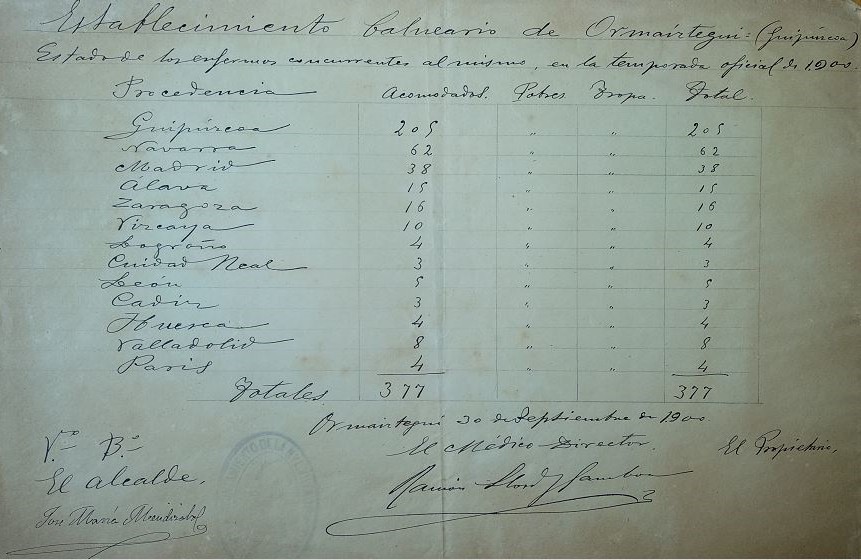 Establecimiento balneario de Ormáiztegui = (Guipúzcoa)
Estado de los enfermos concurrentes al mismo, en la temporada oficial de 1.900.
Procedencia Acomodados. Pobres Tropa. Total.
Guipúzcoa 205 " " 205
Navarra 62 " " 62
Madrid 38 " " 38
Álava 15 " " 15
Zaragoza 16 " " 16
Vizcaya 10 " " 10
Logroño 4 " " 4
Cuidad Real 3 " " 3
León 5 " " 5
Cadiz 3 " " 3
Huesca 4 " " 4
Valladolid 8 " " 8
Paris 4 " " 4
Totales 377 377
Ormaiztegui 30 de Septiembre de 1.900
V.º B.º
El Médico-Director.
El Propietario,
El alcalde,
Ramón Llord y Gamboa
José María Mendizabal